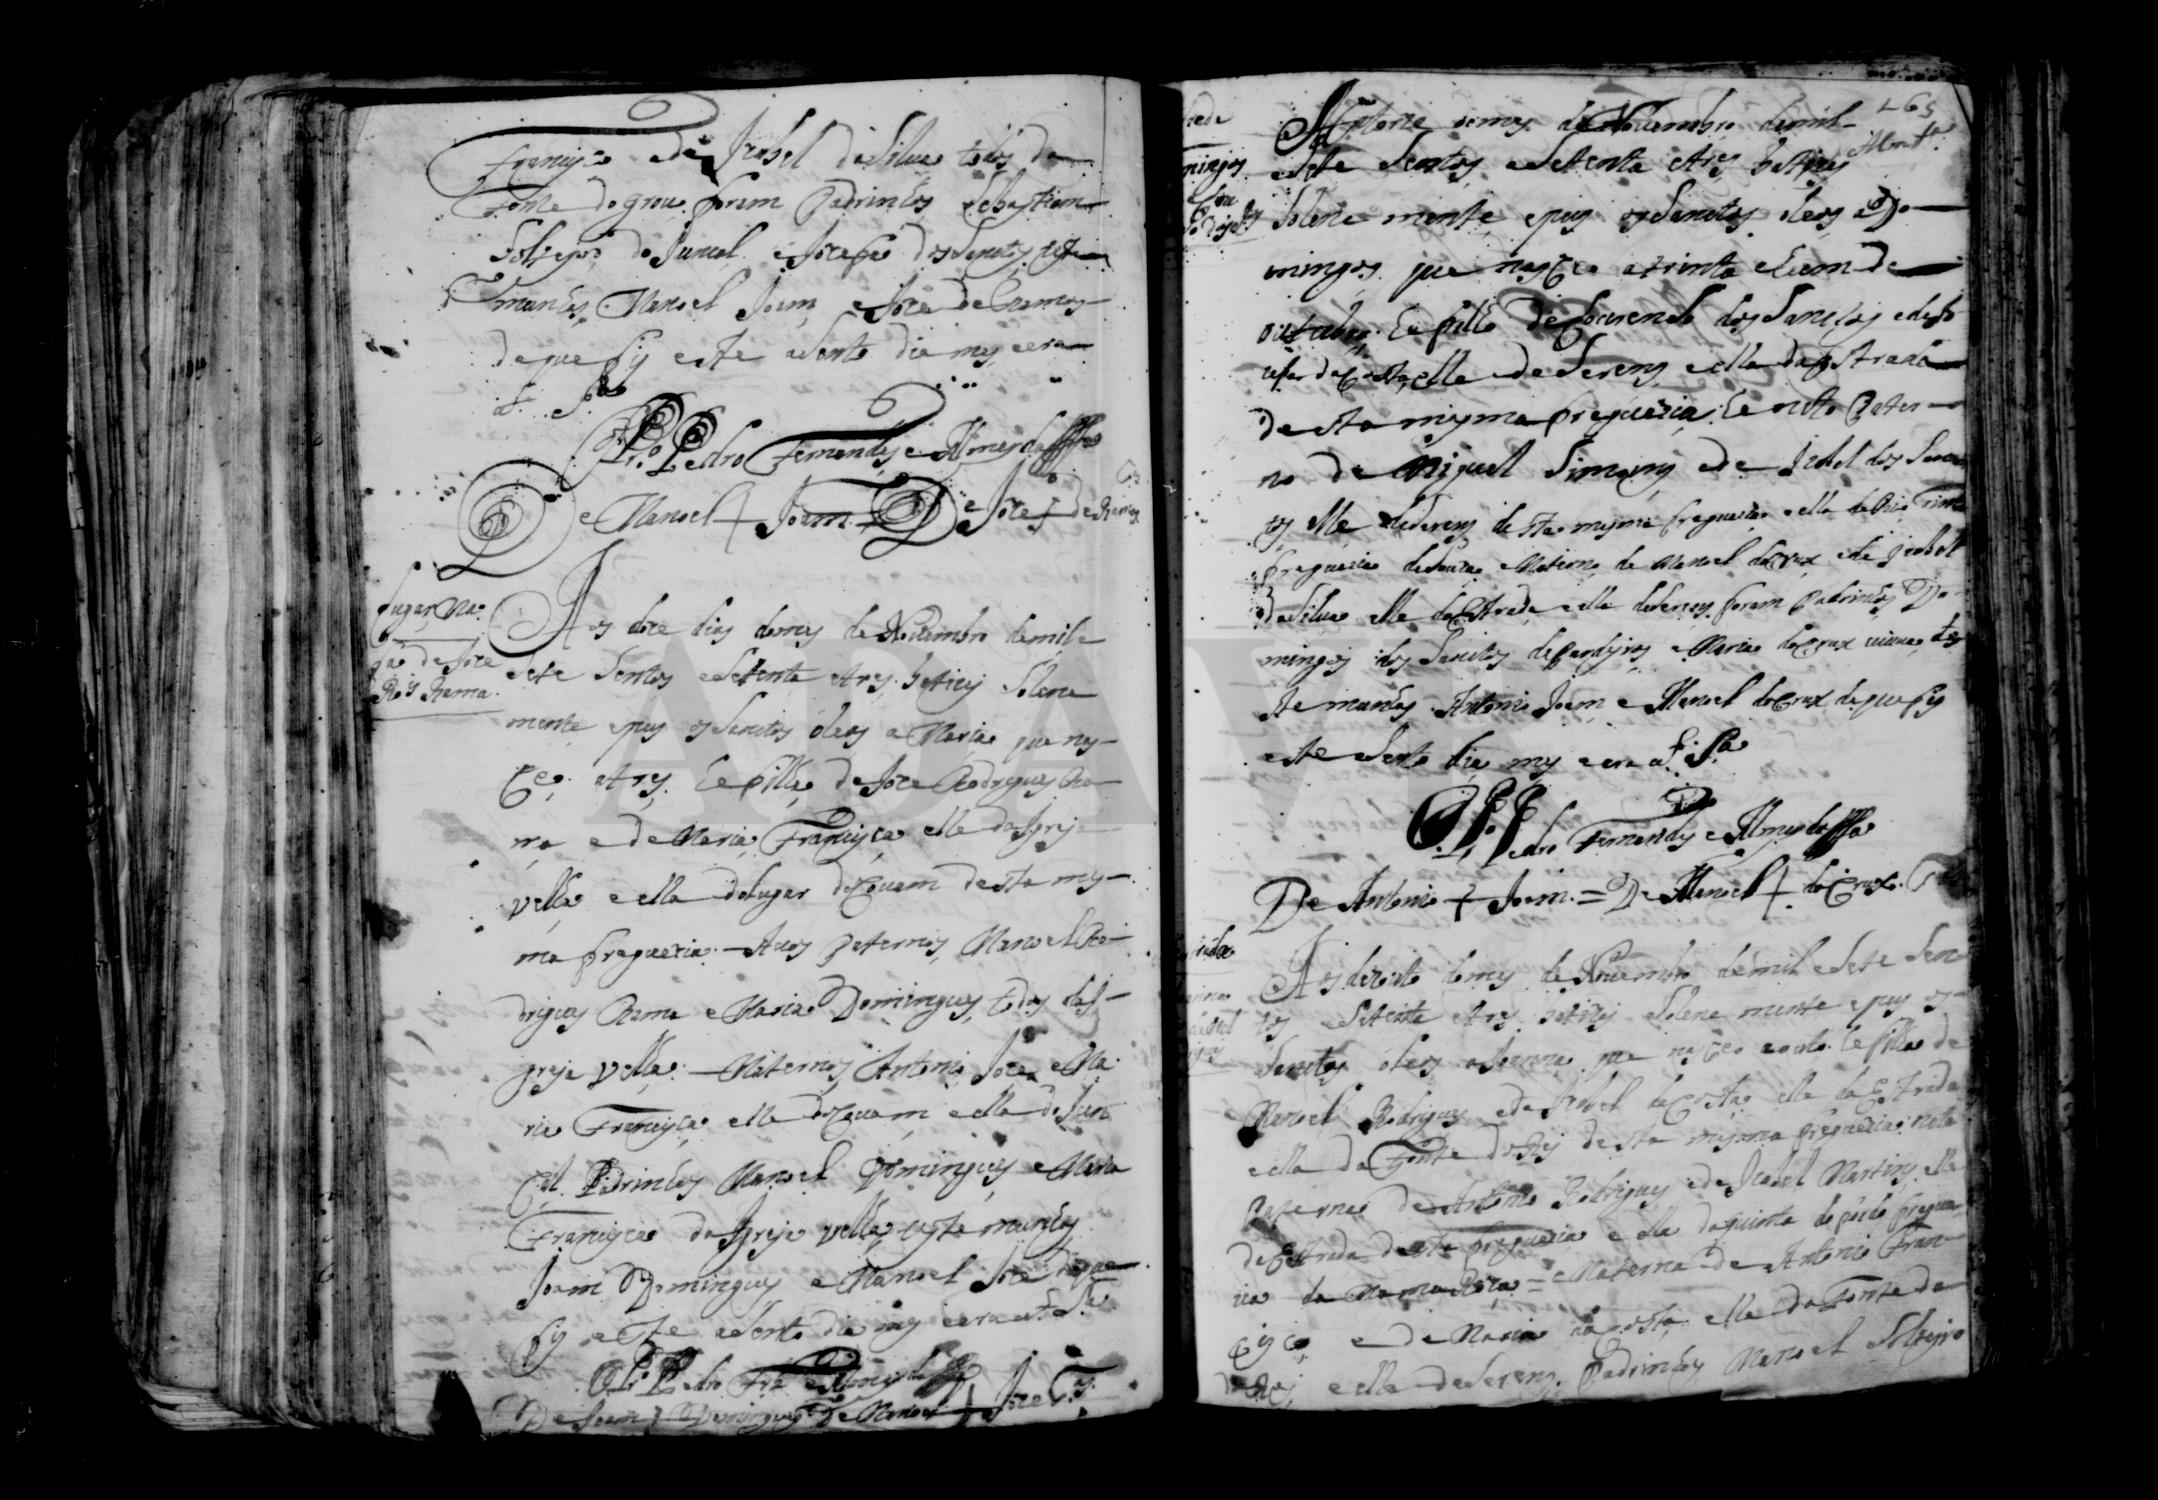 Francisca e de Izabel da Silva todos da
Fonte do grou. foram Padrinhos Sebastiam
Solteyro, do Juncal, e Josepha dos Sanctos, teste
munhas, Manoel Joam, e Joze de Ramos
de que fis este aSento dia mes, e era
ut Sª
O P.º Pedro Fernandes e Almeyda
De Manoel + Joam De Joze + de Ramos
Lugar, Ma.
ria de Joze
Roiz Rama.
Aos doze dias do mes de Novembro de mil e
Sete Sentos e Setenta e tres, batizei Solene
mente, e pus os Sanctos óleos a Maria que nas
Ceo, a tres, he filha de Joze Rodrigues Ra
ma e de Maria Francisca elle da Igreja
velha e ella do Lugar de Covam desta mes
ma freguezia. Avos Paternos, Manoel Ro
drigues Rama e Maria Domingues, todos da I
greja velha. Maternos Antonio Joze e Ma
ria Francisca elle de Covam, e ella do Jun
Cal. Padrinhos Manoel Domingues e Maria
Francisca da Igreja velha, testemunhas,
Joam Domingues e Manoel Joze de que
fis este aSento dia mes e era ut Sª
O P.º Pedro Frz e Almeyda
De Joam + Domingues De Manoel + Joze
265
Aos catorze do mes de Novembro de mil
e Sete Sentos e Setenta e tres batizei
Solene mente, e pus os Sanctos oleos a Do
mingos, que nasceo a trinta e hum de
outubro, he filho de Lourenso dos Sanctos e de Jo
zefa da Costa, elle de Serens, e ella da Estrada
desta mesma freguezia: he neto Pater
no de Miguel Simoens e de Izabel dos Sanc
tos elle de Serens desta mesma freguezia e ella de Rio Tinto
freguezia de Souza e Materno, de Manoel da Crux e de Izabel
da Silva elle da Estrada, e ella de Serens, foram Padrinhos Do
mingos dos Sanctos de Pardeyros, e Maria da Crux viuva, tes
temunhas, Antonio Joam e Manoel da Crux de que fis
este aSento dia mes e era ut Sª
O P.º Pedro Fernandes e Almeyda
De Antonio + Joam = De Manoel + da Crux.
Aos dezouto do mes de Novembro de mil e Sete Sen
tos e Setenta e tres, batizei Solene mente e pus os
Sanctos óleos a Joanna, que nasceo a outo. he filha de
Manoel Rodrigues e de Izabel da Costa elle da Estrada
e ella da Fonte do Rej desta mesma freguezia: neta
Paterna de Antonio Rodrigues e de Izabel Martins, elle
da Estrada desta freguezia e ella da quinta
Materna de Antonio Fran
cisco, e de Maria da Costa, elle da Fonte do
Rej, e ella de Serens. Padrinhos Manoel Solteyro
ADAVR